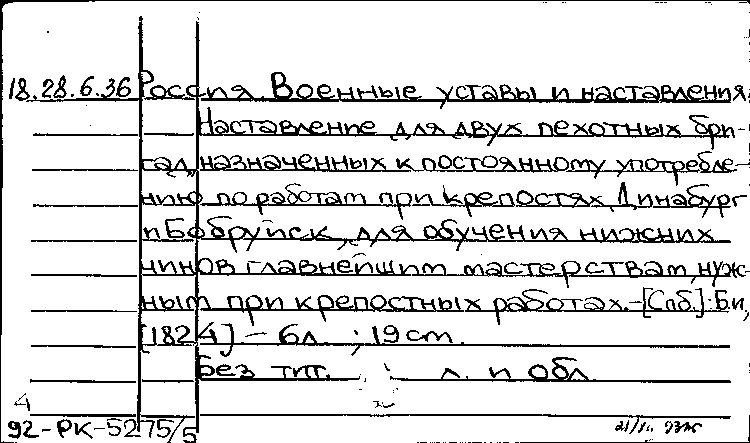 18.28.6.36 Россия. Военные уставы и наставления
Наставление для двух пехотных бри-
гад, назначенных к постоянному употребле-
нию по работам при крепостях Динабург
и Бобруйск, для обучения нижних
чинов главнейшим мастерствам, нуж-
ным при крепостных работах. - [Спб.]: Би,
[1824] - 6л. ; 19 cm.
Без тит. л. и обл.
4
92-РК-5275/5